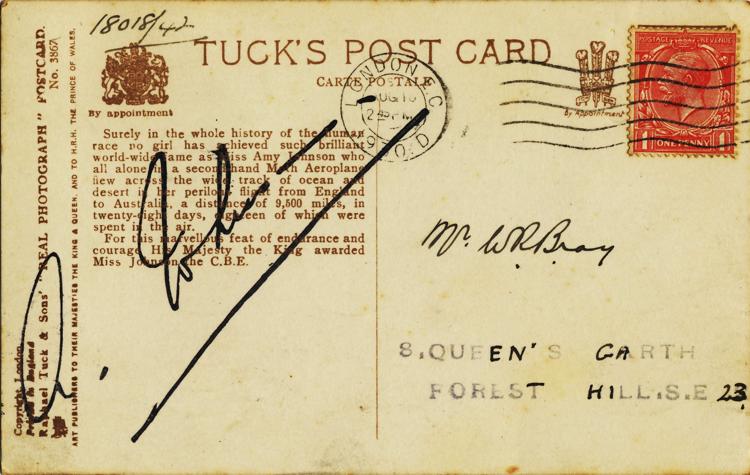 18018/42
TUCK'S POST CARD
CARTE POSTALE
By appointment
Surely in the whole history of the human
race no girl has achieved such brilliant
world-wide fame as Miss Amy Johnson who
all alone in a secondhand Moth Aeroplane
flew across the wide track of ocean and
desert in her perilous flight from England
to Australia, a distance of 9,500 miles, in
twenty-eight days, eighteen of which were
spent in the air.
For this marvellous feat of endurance and
courage His Majesty the King awarded
Miss Johnson the C.B.E.
Copyright London
Printed in England
Raphael Tuck & Sons' "REAL PHOTOGRAPH" POSTCARD. No. 3867
ART PUBLISHERS TO THEIR MAJESTIES THE KING & QUEEN, AND TO H.R.H. THE PRINCE OF WALES.
LONDON E.C.
By Appointment
POSTAGE REVENUE
1 ONE PENNY 1
Mr. W R Bray
8, QUEEN'S GARTH
FOREST HILL. S.E 23